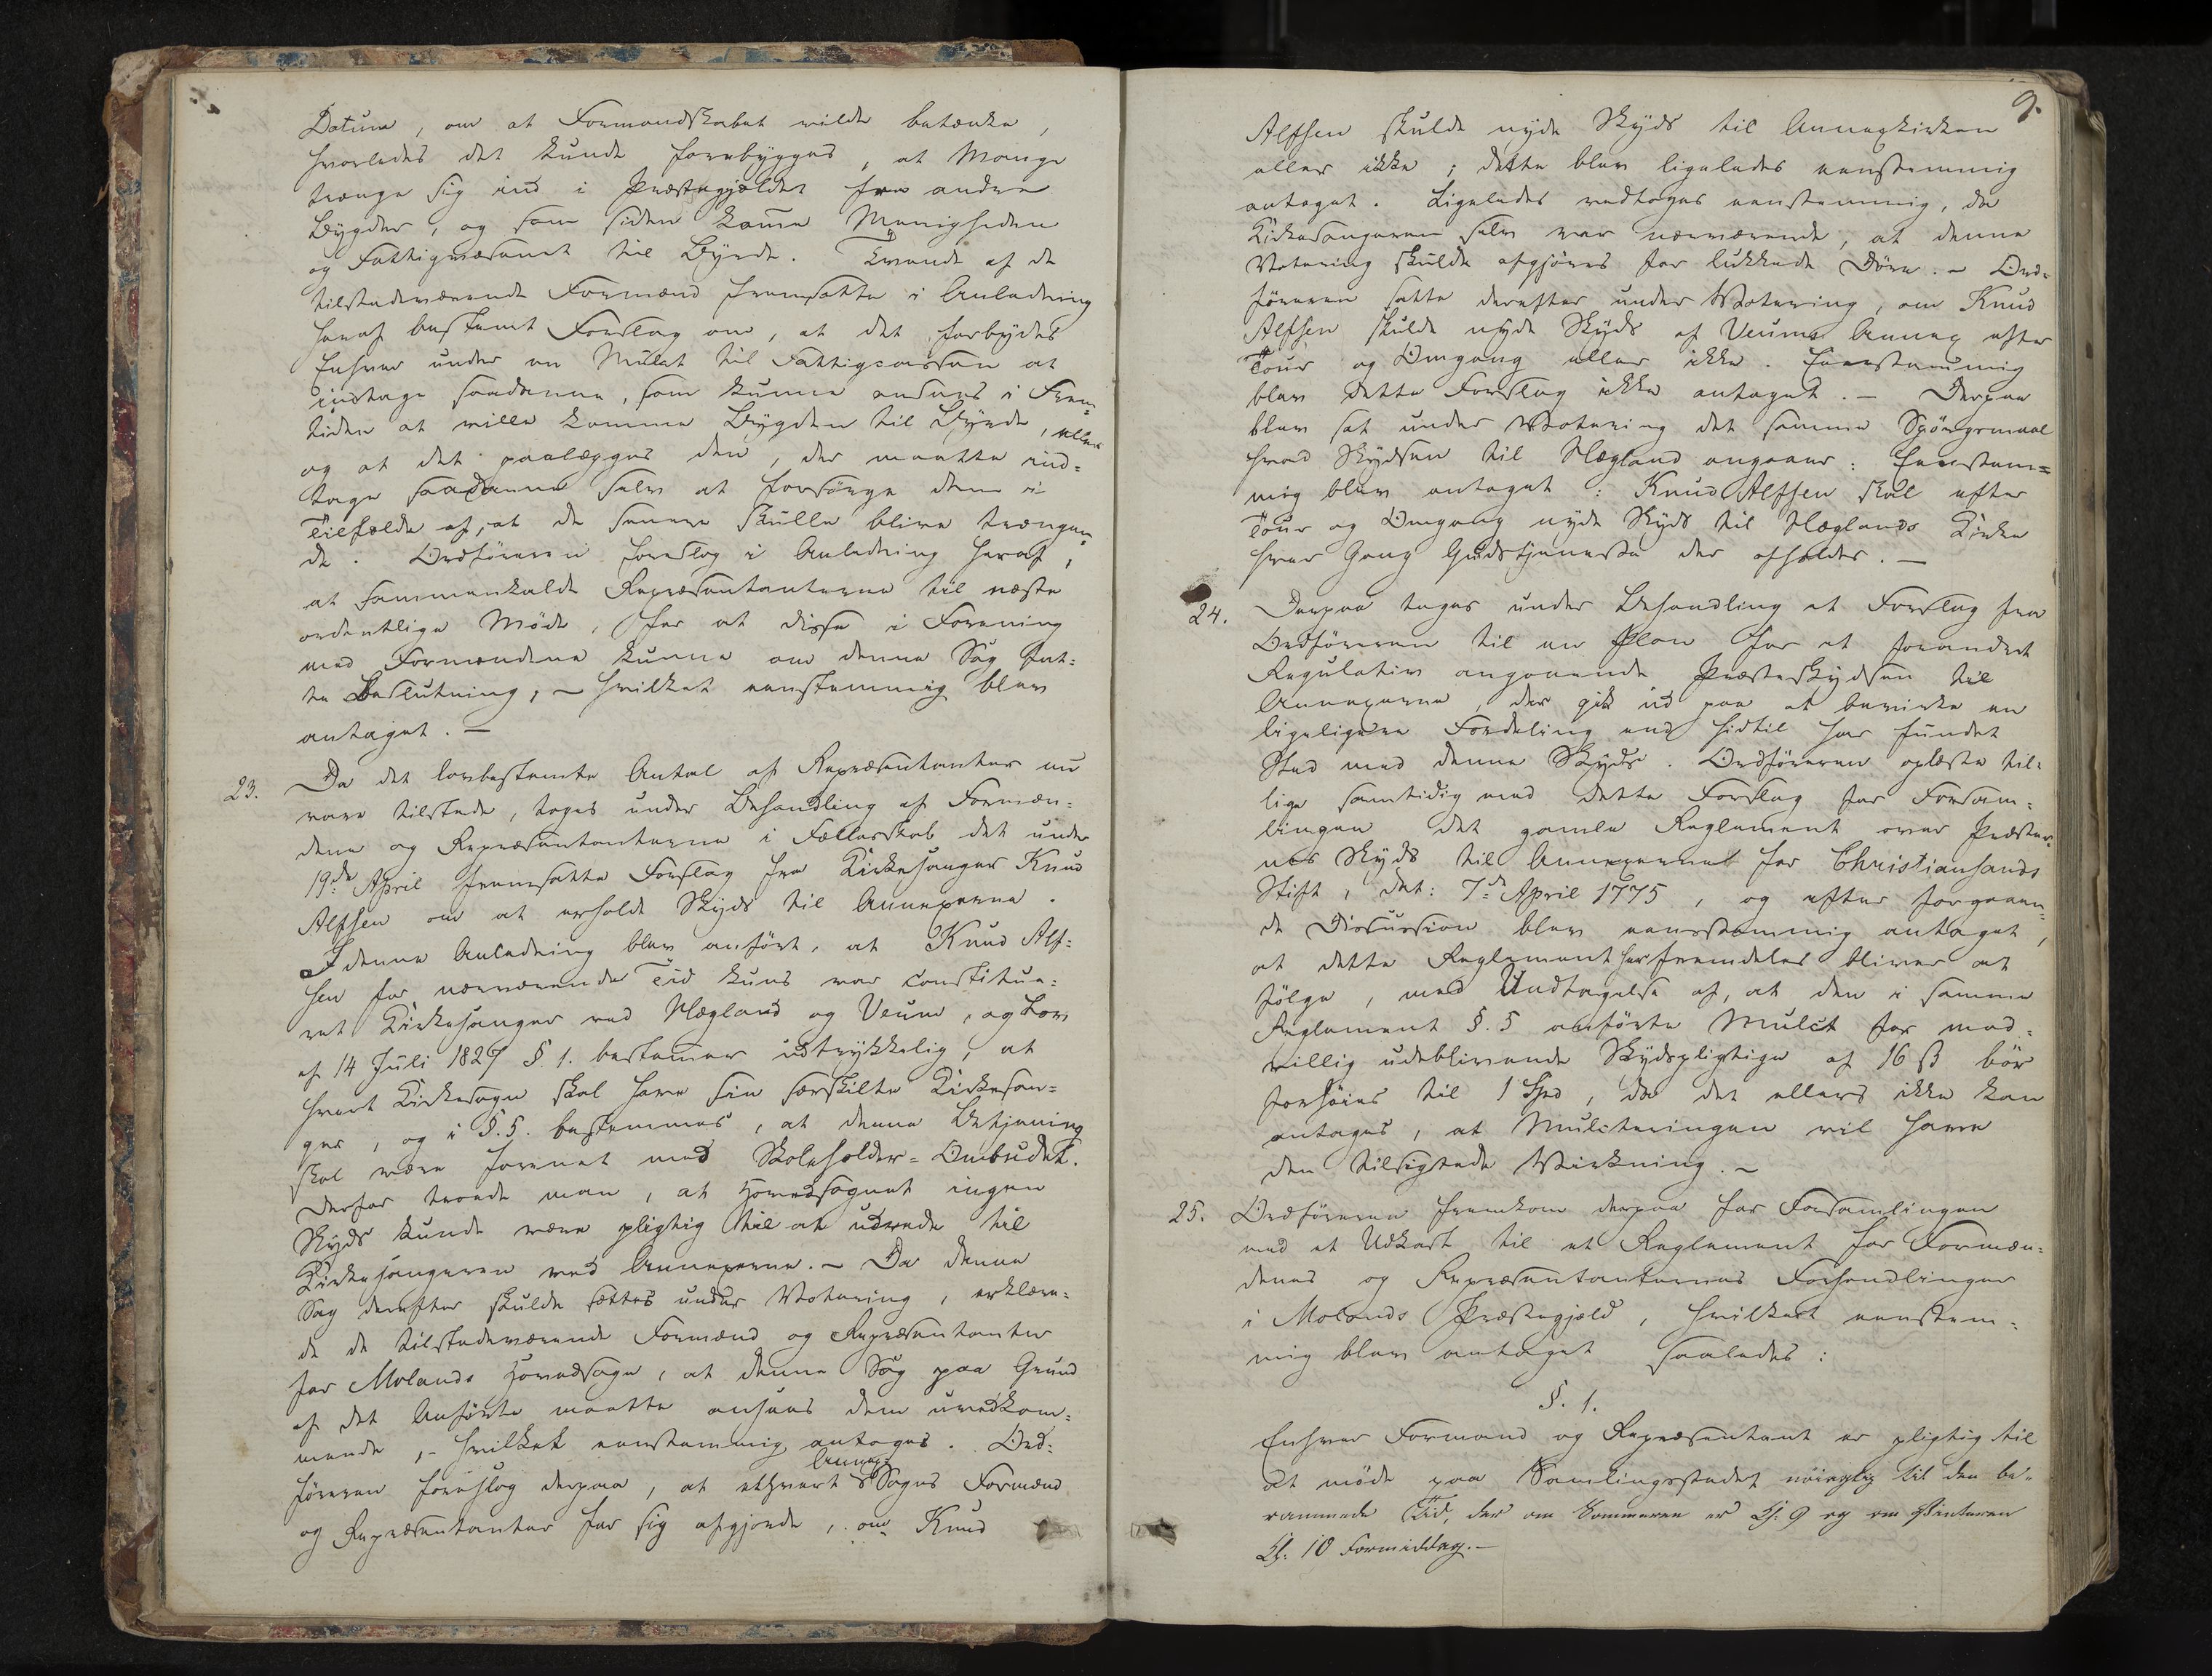 Datum, om at Formandskabet vilde betænke,
hvorledes det kunde forebygges, at Mange
trænge sig ind i Præstegjældet fra andre
Bygder, og som siden kom̄e Menigheden
og Fattigvæsenet til Byrde. Tvende af de
tilstedeværende Formænd fremsatte i Anledning
heraf bestemt Forslag om, at det forbydes
Enhver under en Mulct til Fattigcassen at
indtage saadanne, som kunne ansees i Frem-
tiden at ville komme Bygden til Byrde, eller
og at det paalægges den, der maatte ind-
tage saadanne selv at forsörge dem i
Tilfælde af, at de senere skulle blive trængen-
de. Ordföreren foreslog i Anledning heraf,
at sammenkalde Repræsentanterne til næste
ordentlige Møde, for at disse i Forening
med Formændene kunne om denne Sag fat-
te Beslutning; – hvilket eenstemmig blev
antaget. –
23. Da det lovbestemte Antal af Repræsentanter nu
vare tilstede, toges under Behandling af Formæn-
dene og Repræsentanterne i Fællesskab det under
19de April fremsatte Forslag fra Kirkesanger Knud
Alfsen om at erholde Skyds til Annexerne.
I denne Anledning blev anfört, at Knud Alf-
sen for nærværende Tid kuns var constitue-
ret Kirkesanger ved Hægland og Veum, og Lov
af 14 Juli 1827 §. 1. bestemmer udtrykkelig, at
hvert Kirkesogn skal have sin særskilte Kirkesan-
ger, og i §. 5. bestemmes, at denne Betjening
skal være forenet med Skoleholder-Ombudet.
Derfor troede man, at Hovedsognet ingen
Skyds kunde være pligtig til at udrede til
Kirkesangeren ved Annexerne. – Da denne
Sag derefter skulde sættes under Votering, erklære-
de de tilstedeværende Formænd og Repræsentanter
for Molands Hovedsogn, at denne Sag paa Grund
af det Anförte maatte ansees dem uvedkom-
mende, – hvilket eenstemmig antoges. Ord-
föreren foreslog derpaa, at ethvert Annex- Sogns Formænd
og Repræsentanter for sig afgjorde, om Knud
9.
Alfsen skulde nyde Skyds til Annexkirken
eller ikke; dette blev ligeledes eenstemmig
antaget. Ligeledes vedtoges eenstemmig, da
Kirkesangeren selv var nærværende, at denne
Votering skulde afgjöres for lukkede Döre. – Ord-
föreren satte derefter under Votering, om Knud
Alfsen skulde nyde Skyds af Veums Annex efter
Tour og Omgang eller ikke. Eenstemmig
blev dette Forslag ikke antaget. – Derpaa
blev sat under Votering det samme Spörgsmaal
hvad Skydsen til Hægland angaaer: Eenstem-
mig blev antaget: Knud Alfsen skal efter
Tour og Omgang nyde Skyds til Hæglands Kirke
hver Gang Gudstjeneste der afholdes. –
24. Derpaa toges under Behandling et Forslag fra
Ordföreren til en Plan for et forandret
Regulativ angaaende Præsteskydsen til
Annexerne, der gik ud paa at bevirke en
ligeligere Fordeling end hidtil har fundet
Sted med denne Skyds. Ordföreren oplæste til-
lige samtidig med dette Forslag for Forsam-
lingen det gamle Reglement over Præster-
nes Skyds til Annexerne for Christiansands
Stift, dat: 7de April 1775, og efter forgaaen-
de Discussion blev eenstemmig antaget,
at dette Reglement her fremdeles bliver at
fölge, med Undtagelse af, at den i samme
Reglement §. 5 anförte Mulct for mod-
villig udeblivende Skydspligtige af 16 ß bör
forhöies til 1 Spd, da det ellers ikke kan
antages, at Mulcteringen vil have
den tilsigtede Virkning. –
25. Ordföreren fremkom derpaa for Forsamlingen
med et Udkast til et Reglement for Formæn-
denes og Repræsentanternes Forhandlinger
i Molands Præstegjæld, hvilket eenstem-
mig blev antaget saaledes:
§. 1.
Enhver Formand og Repræsentant er pligtig til
at möde paa Samlingsstedet nöiagtig til den be-
rammede Tid, der om Sommeren er Kl. 9 og om Vinteren
Kl. 10 Formiddag. –